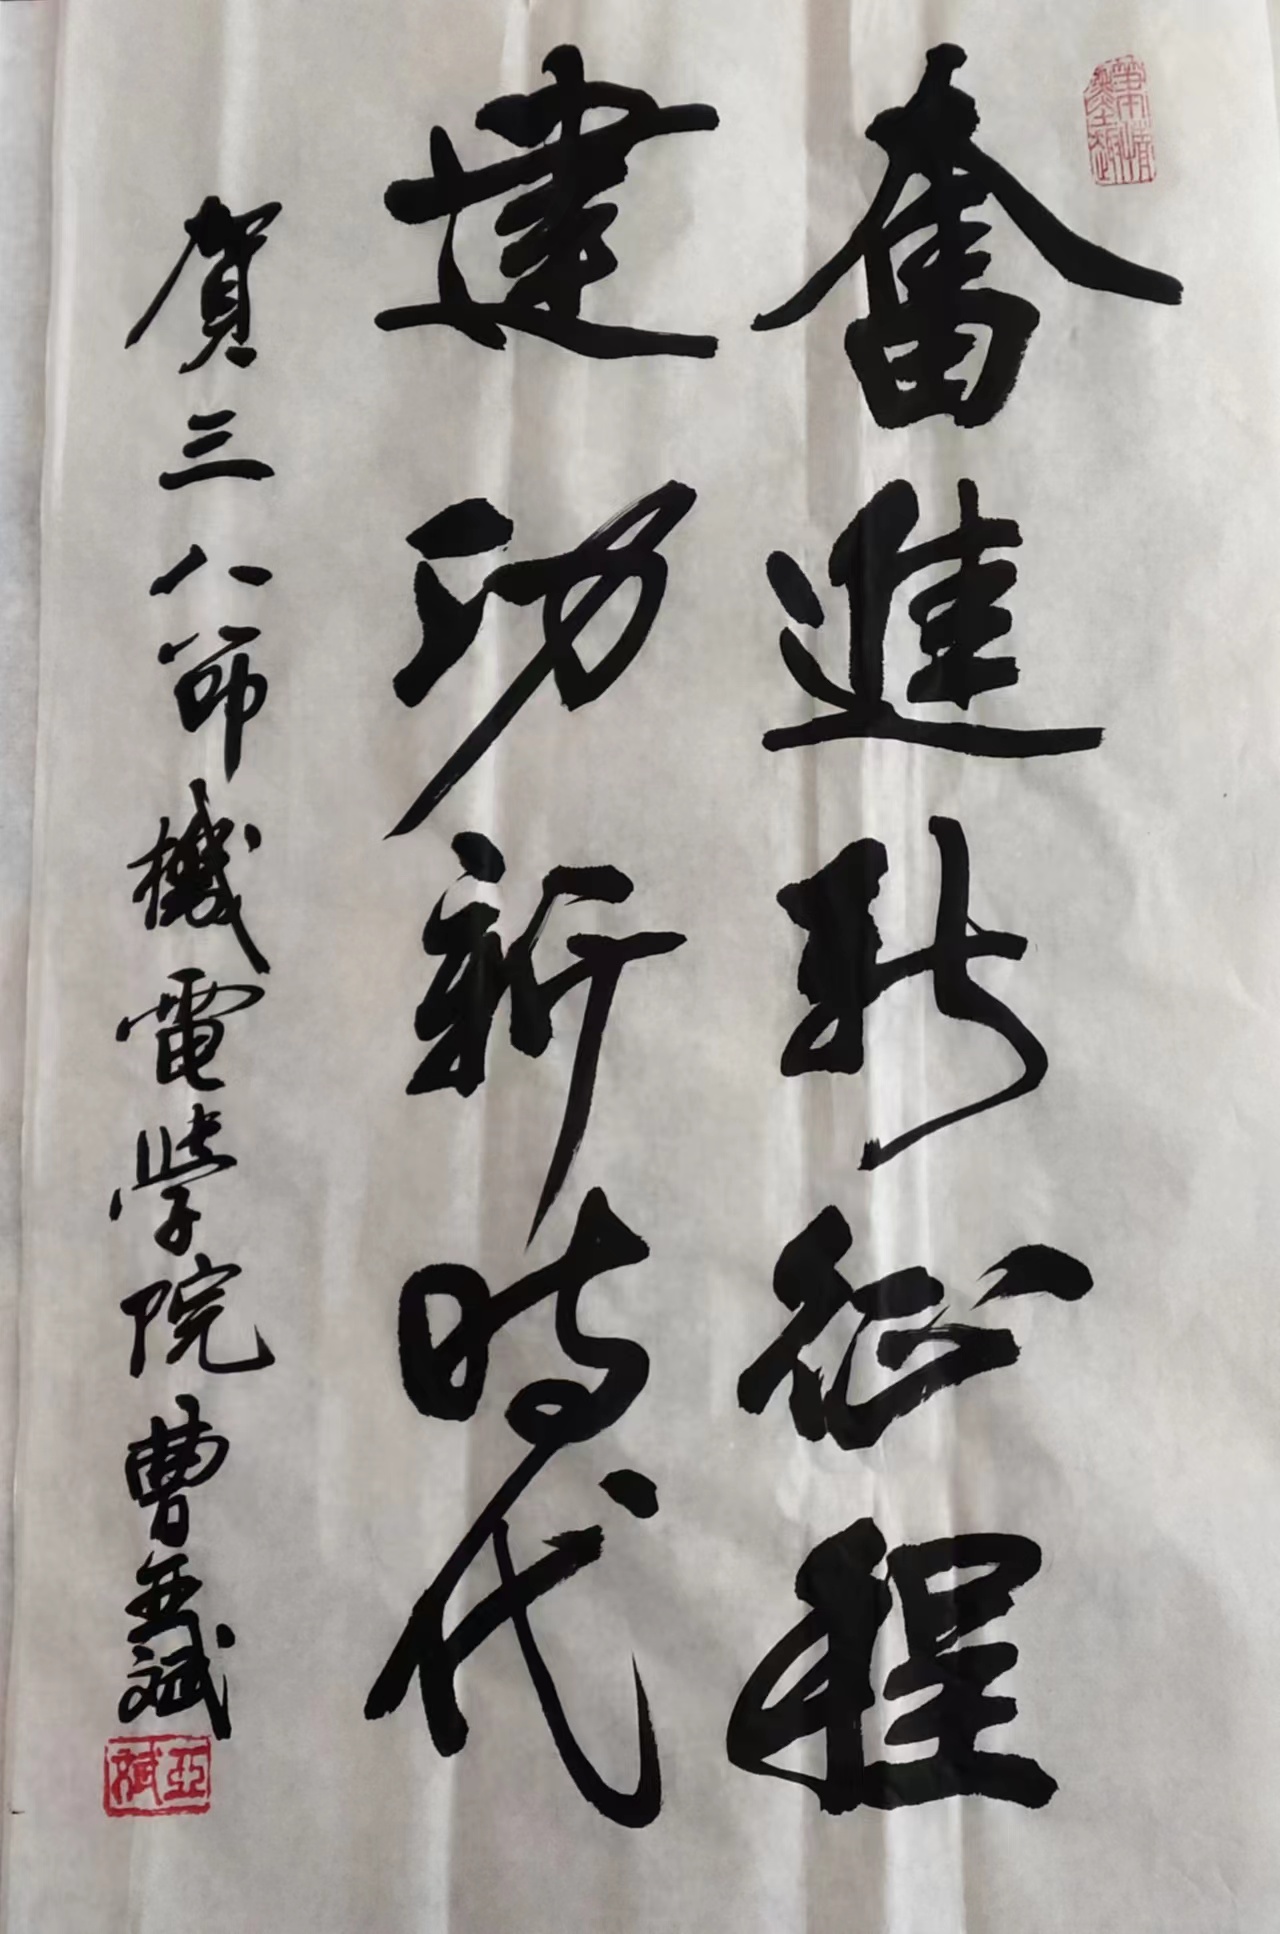 奮進新征程
建功新時代
賀三八節機電學院曹亞斌
亞斌